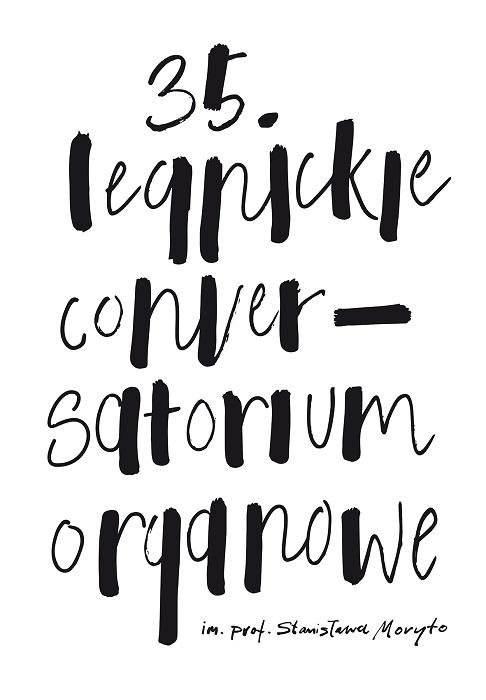 35.
legnickie
conver-
satorium
organowe
im. prof. Stanisława Moryto